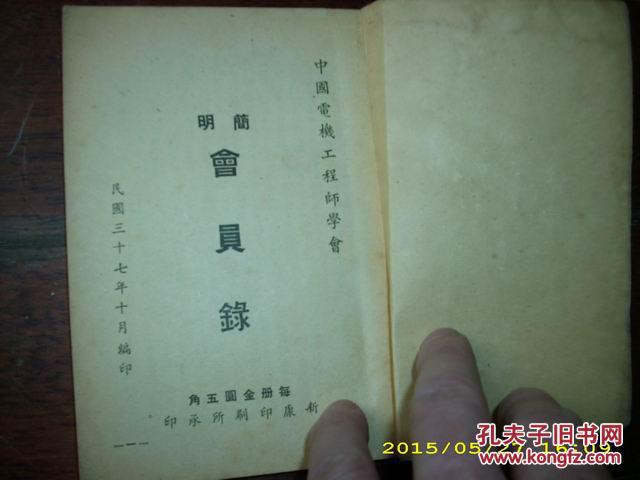 中國電機工程師學會
簡明
會員錄
民國三十七年十月編印
每册金圓五角
新康印刷所承印
—一—
2015/05/27 16:09
孔夫子旧书网
www.kongfz.com